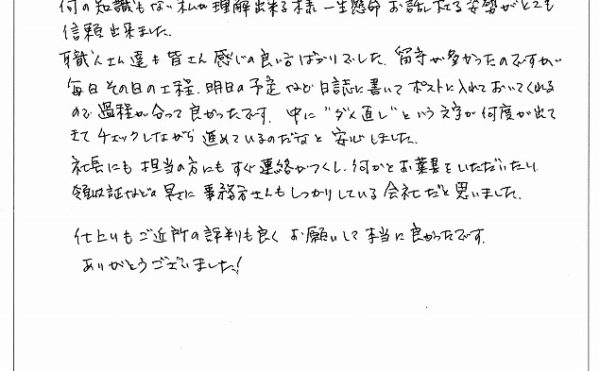 何の知識もない私が理解出来る様 一生懸命 お話して下さる姿勢がとても
信頼出来ました。
職人さん達も皆さん感じの良い方ばかりでした。留守が多かったのですが
毎日その日の工程、明日の予定などを日誌に書いてポストに入れておいてくれる
ので過程が分って良かったです。中に"ダメ直し"という文字が何度が出て
きてチェックしながら進めているのだなと安心しました。
社長にも担当の方にもすぐ連絡がつくし、何かとお葉書をいただいたり、
領収証などの早さに事務方さんもしっかりしている会社だと思いました。
仕上りもご近所の評判も良く お願いして本当に良かったです。
ありがとうございました！